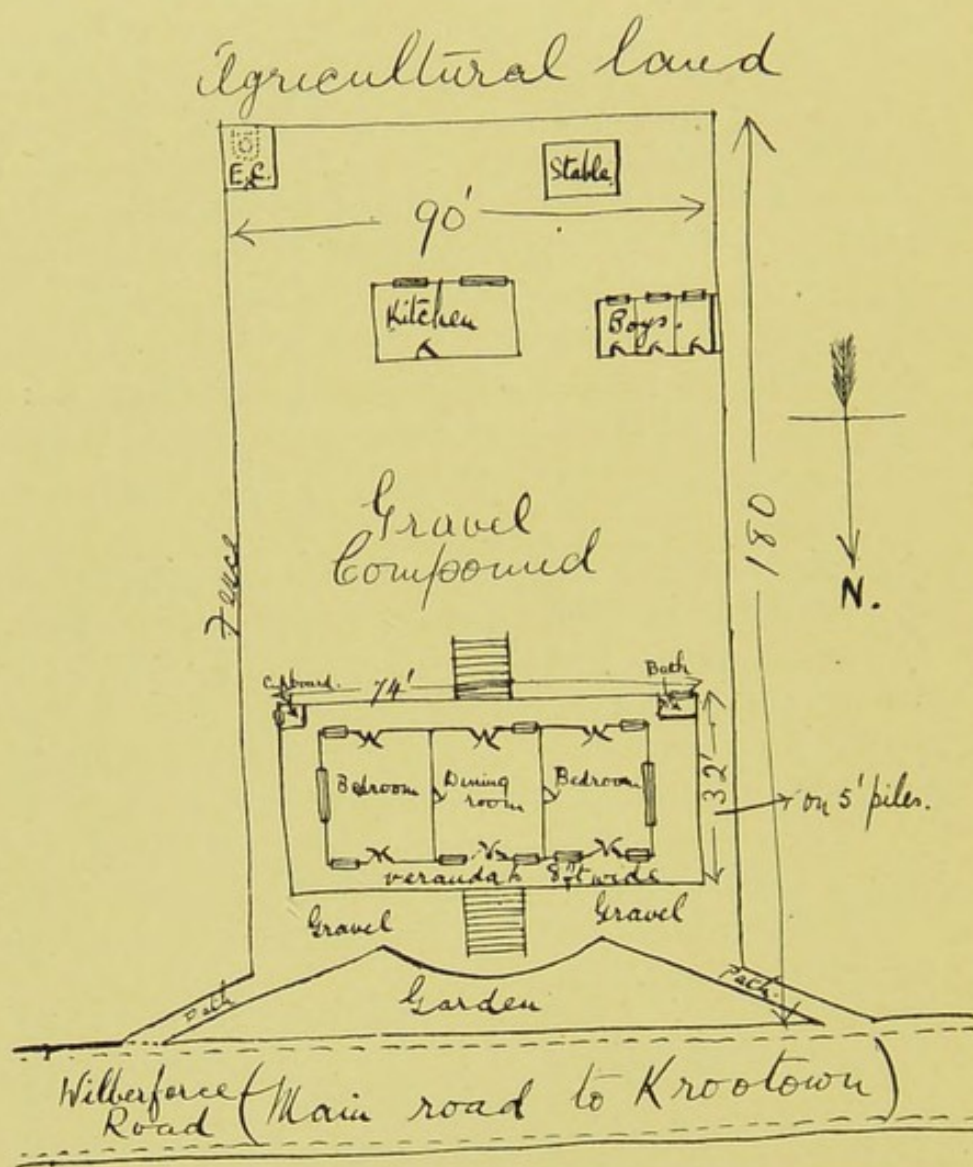 Agricultural land
E.C.
Stable
90'
Kitchen
Boys.
180
N.
Gravel
Compound
Fence
Cupboard.
74'
Bath
Bedroom
Dining
room
Bedroom
32'
on 5' piles.
verandah 8ft wide
Gravel
Gravel
Path
Garden
Path.
Wilberforce
Road
(Main road to Krootown)